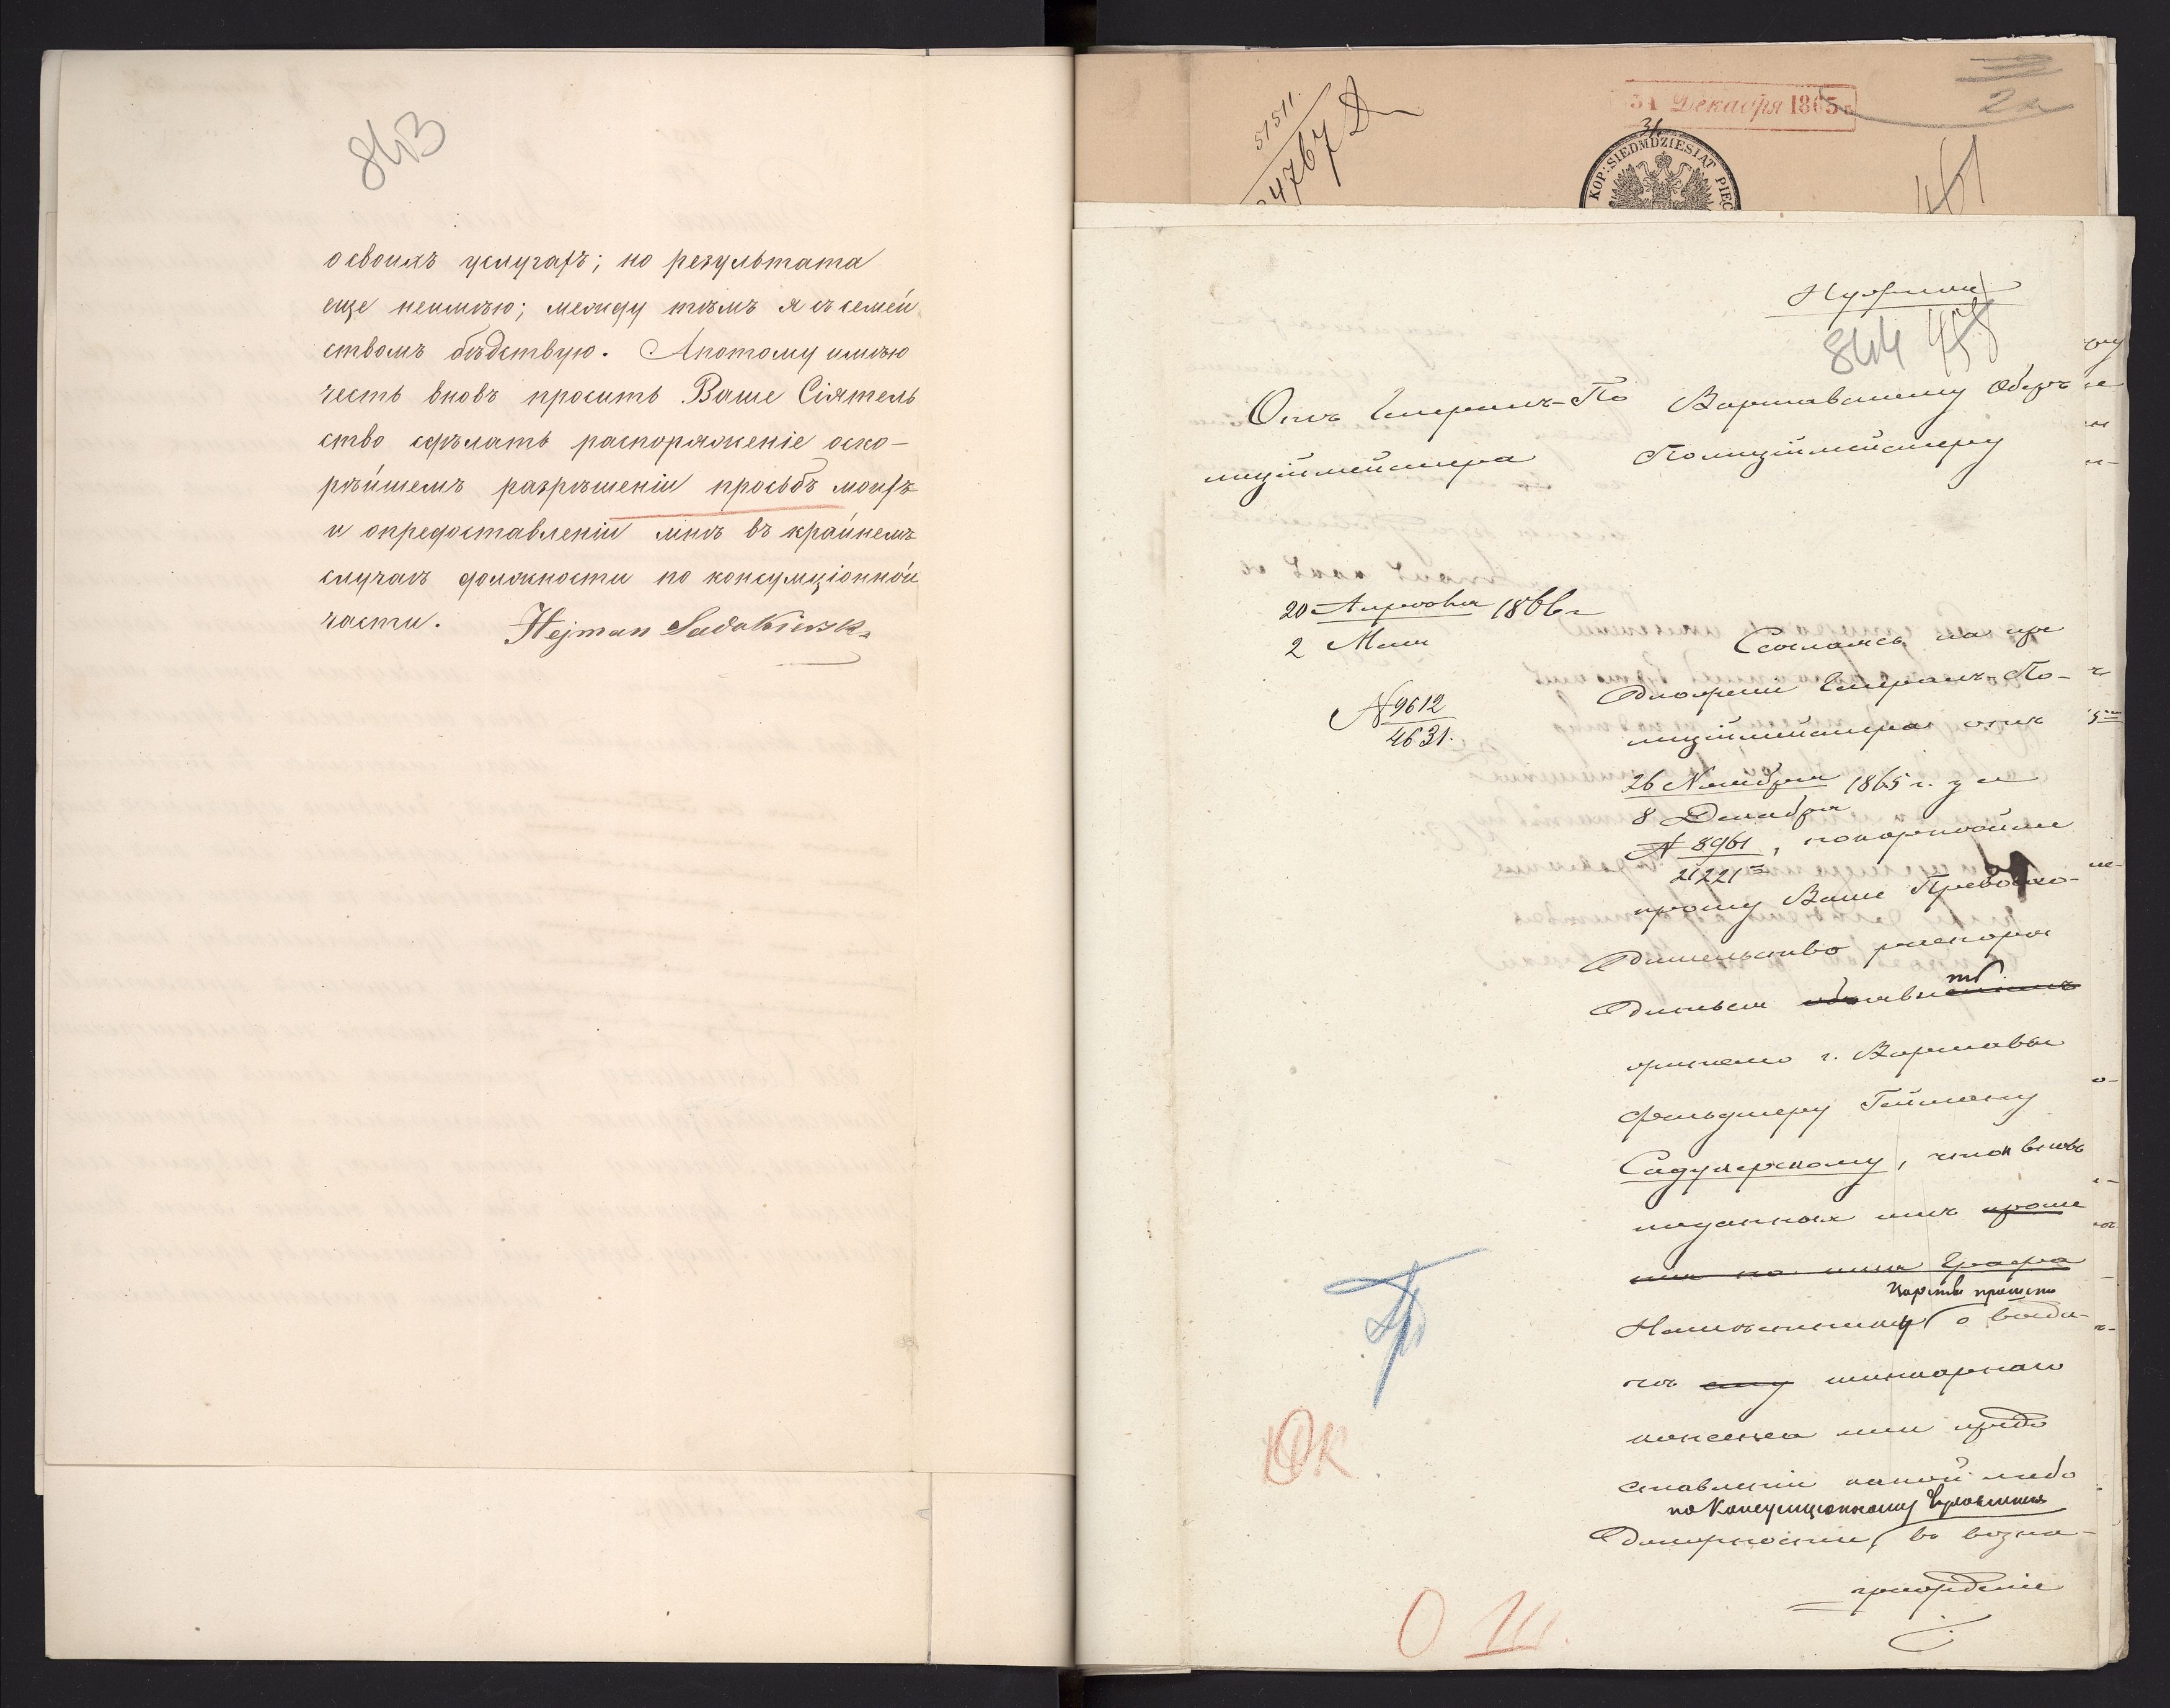 843
о своихъ услугахъ; но результата
еще неимѣю; между тѣмъ я съ семей
ствомъ бѣдствую. Апотому имѣю
честь вновь просить Ваше Сіятель
ство сдѣлать распоряженіе оско-
рѣйшемъ разрѣшеніи просьбъ моихъ
и опредоставленіи мнѣ въ крайнемъ
случаѣ должности по консумціонной
части. Hejman
51511.
4767
31 Декабря 1865 г.
31
2
KOP: SIEDMDZIESIĄT PIĘĆ
461
Нужное
844 458
Отъ Генералъ-По
лиціймейстера
Варшавскому Оберъ
Полиціймейстеру
20 Апрѣля 1866 г
2 Мая
N 9612
4631.
Ссылаясь на пре
дложеніе Генералъ-По-
лиціймейстера отъ
26 Ноября 1865 г. за
8 Декабря
N 8961, покорнѣйше
21221
прошу Ваше Превосхо-
дительство распоря
диться объявить
жителю г. Варшавы
фельдшеру Гейману
Садукерскому, что вновь
поданная имъ проше
нія на имя Графа
Царства прошенія
Намѣстнику о выда-
чѣ ему шинкарнаго
консенса или предо
ставленіи какой либо
по Консумціонному Управленію
должности, въ возна-
гражденіе
ОК
О III.